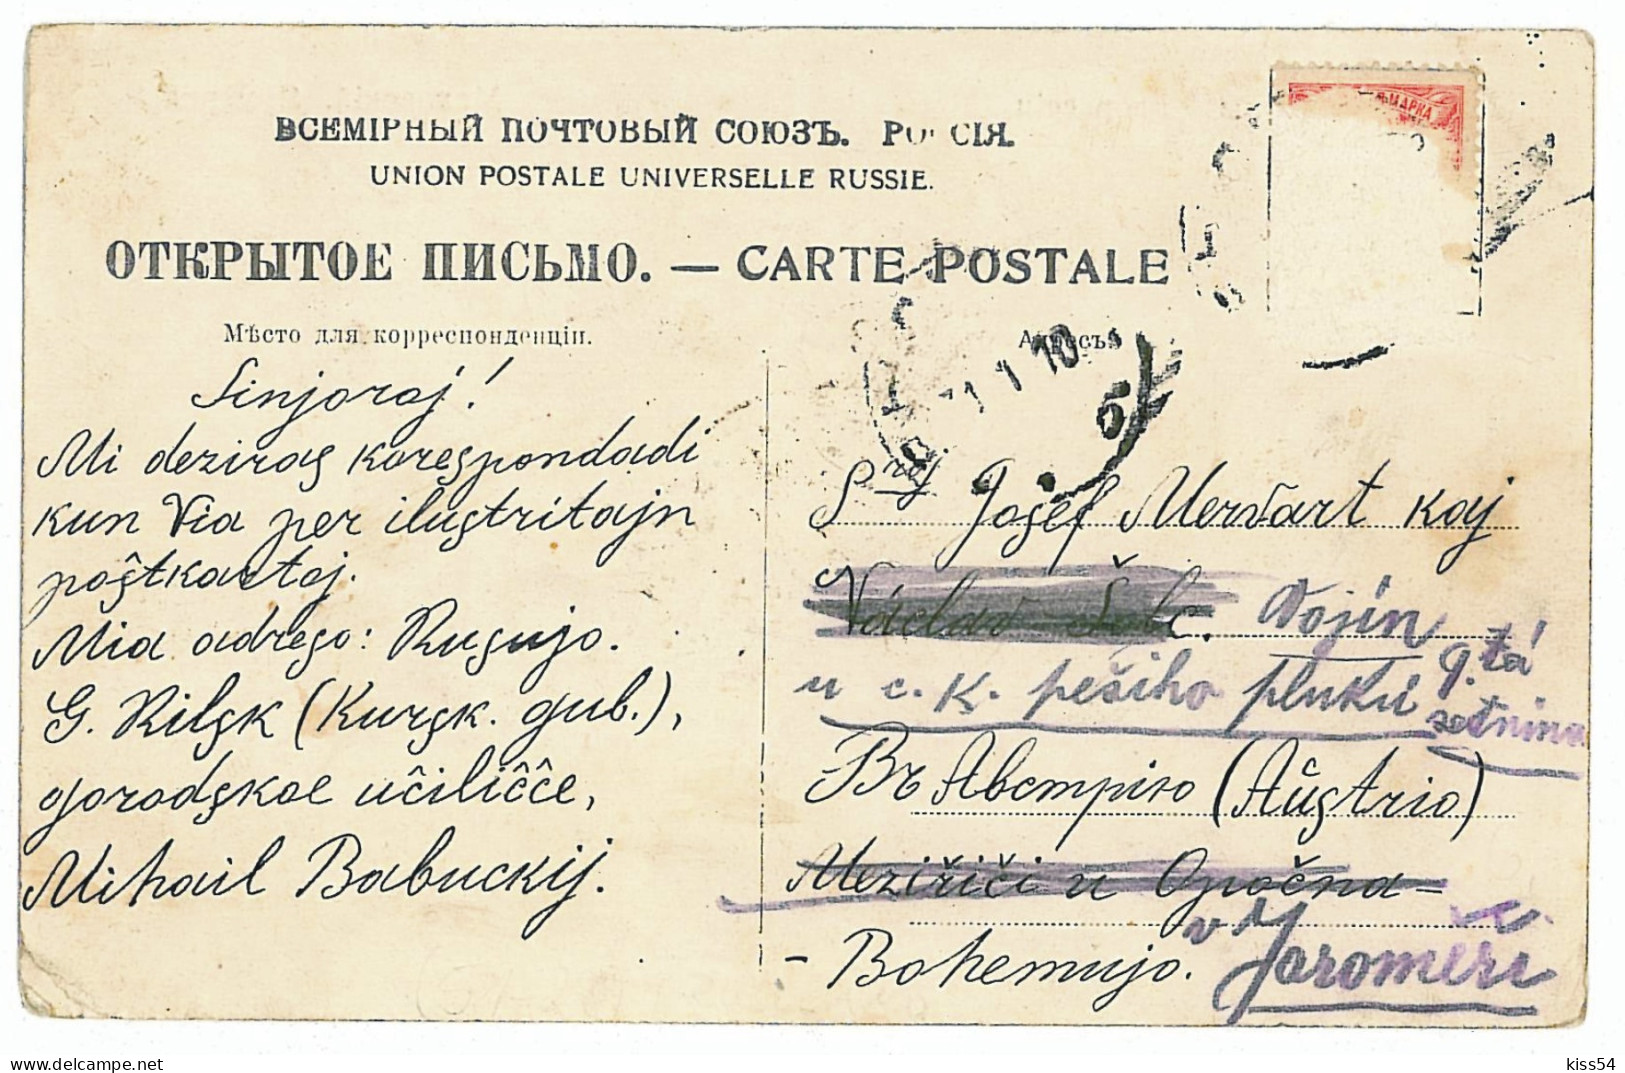 ВСЕМІРНЫЙ ПОЧТОВЫЙ СОЮЗЪ. РОССІЯ.
UNION POSTALE UNIVERSELLE RUSSIE.
ОТКРЫТОЕ ПИСЬМО. — CARTE POSTALE
МАРКА
Мѣсто для корреспонденціи.
Адресъ
1 1 10
б
Sinjoraj!
Mi deziras korespondadi
kun Via per ilustritajn
poŝtkartoj.
Mia adreso: Rusujo.
G. Rilsk (Kursk. gub.),
gorodskoe uĉiliĉĉe,
Mihail Babuckij.
Sroj Josef Mervart kaj
Václav Vojín
u c. k. pěšího pluku 9.tá
setnina
Въ Австрію (Aŭstrio)
Meziřiči u Opočna-
- Bohemujo. v Jaroměři
kiss54
delcampe.net